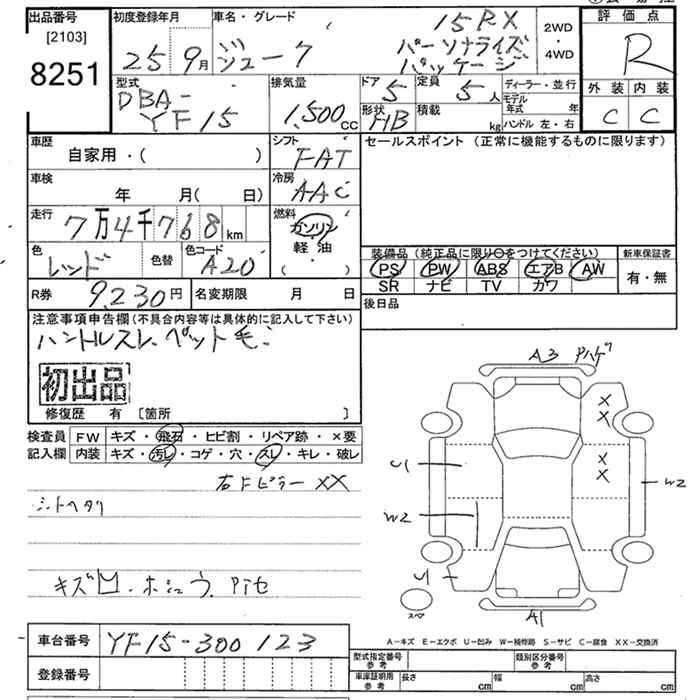 出品番号
[2103]
8251
初度登録年月
25 9月
車名・グレード
ジューク
15RX
パーソナライズ
パッケージ
2WD
・
4WD
評価点
R
外装 内装
C C
型式
DBA-
YF15
排気量
1,500cc
ドア
5
定員
5人
形状
HB
積載
kg
ディーラー・並行
モデル年式 年
ハンドル 左・右
車歴
自家用・( )
シフト
FAT
セールスポイント(正常に機能するものに限ります)
車検
年 月( 日)
冷房
AAC
走行
7万4千768km
燃料
ガソリン
軽・油
( )
色
レッド
色替
色コード
A20
装備品(純正品に限り○をつけてください)
PS PW ABS エアB AW
SR ナビ TV カワ
新車保証書
有・無
R券
9,230円
名変期限 月 日
後日品
注意事項申告欄(不具合内容等は具体的に記入して下さい)
ハンドルスレ ペット毛
初出品
修復歴 有 [箇所 ]
検査員
記入欄
FW キズ・飛石・ヒビ割・リペア跡・×要
内装 キズ・汚レ・コゲ・穴・スレ・キレ・破レ
右Fピラー XX
シートヘタリ
キズ凹
A3
U1
W2
W2
U
A1
A-キズ E-エクボ U-凹み W-補修跡 S-サビ C-腐食 XX-交換済
車台番号
YF15-300123
登録番号
型式指定番号
参考
類別区分番号
参考
車庫証明用
参考
長さ cm
幅 cm
高さ cm